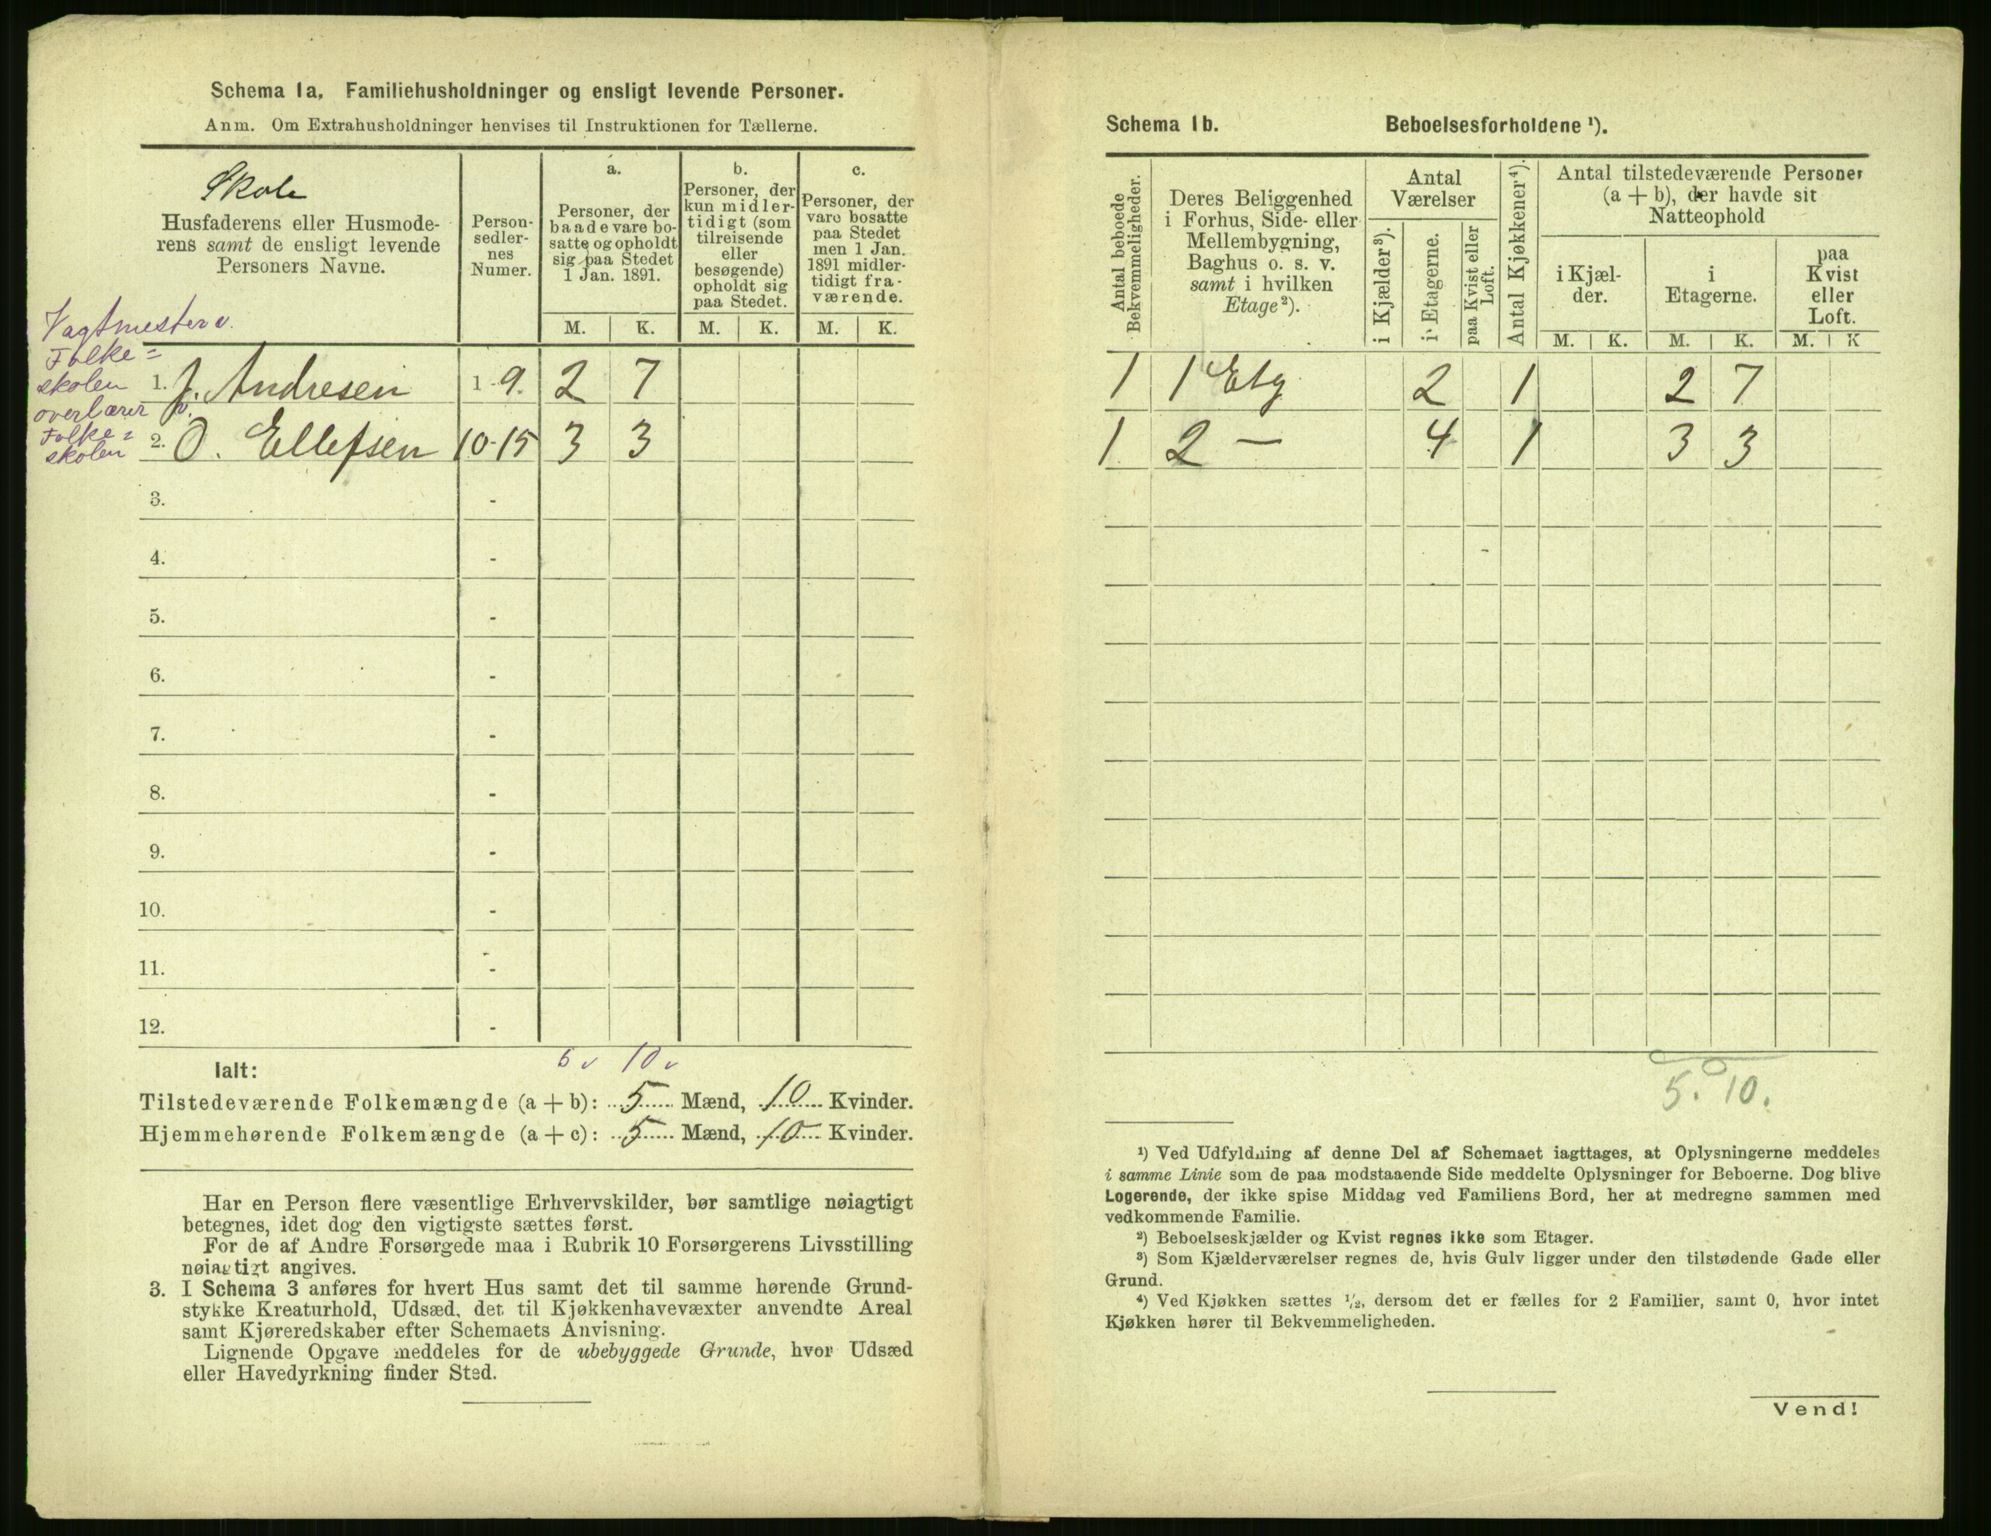 Schema 1a. Familiehusholdninger og ensligt levende Personer.
Anm. Om Extrahusholdninger henvises til Instruktionen for Tællerne.
Skole
Husfaderens eller Husmode-
rens samt de ensligt levende
Personers Navne.
Person-
sedler-
nes
Numer.
a.
Personer, der
baade vare bo-
satte og opholdt
sig paa Stedet
1 Jan. 1891.
b.
Personer, der
kun midler-
tidigt (som
tilreisende
eller
besøgende)
opholdt sig
paa Stedet.
c.
Personer, der
vare bosatte
paa Stedet
men 1 Jan.
1891 midler-
tidigt fra-
værende.
M. K. M. K. M. K.
Vagtmester v.
Folke=
skolen
1. J. Andresen 1-9. 2 7
overlærer v.
Folke=
skolen
2. O. Ellefsen 10-15 3 3
3. -
4. -
5. -
6. -
7. -
8. -
9. -
10. -
11. -
12. -
6 v 10 v
Ialt:
Tilstedeværende Folkemængde (a + b): 5 Mænd, 10 Kvinder.
Hjemmehørende Folkemængde (a + c): 5 Mænd, 10 Kvinder.
Har en Person flere væsentlige Erhvervskilder, bør samtlige nøiagtigt
betegnes, idet dog den vigtigste sættes først.
For de af Andre Forsørgede maa i Rubrik 10 Forsørgerens Livsstilling
nøiagtigt angives.
3. I Schema 3 anføres for hvert Hus samt det til samme hørende Grund-
stykke Kreaturhold, Udsæd, det til Kjøkkenhavevæxter anvendte Areal
samt Kjøreredskaber efter Schemaets Anvisning.
Lignende Opgave meddeles for de ubebyggede Grunde, hvor Udsæd
eller Havedyrkning finder Sted.
Schema 1b. Beboelsesforholdene ¹).
Antal beboede
Bekvemmeligheder.
Deres Beliggenhed
i Forhus, Side- eller
Mellembygning,
Baghus o. s. v.
samt i hvilken
Etage²).
Antal
Værelser
i Kjælder³).
i Etagerne.
paa Kvist eller
Loft.
Antal Kjøkkener⁴).
Antal tilstedeværende Personer
(a + b), der havde sit
Natteophold
i Kjæl-
der.
i
Etagerne.
paa
Kvist
eller
Loft.
M. K. M. K. M. K
1 1 Etg 2 1 2 7
1 2 — 4 1 3 3
5. 10.
¹) Ved Udfyldning af denne Del af Schemaet iagttages, at Oplysningerne meddeles
i samme Linie som de paa modstaaende Side meddelte Oplysninger for Beboerne. Dog blive
Logerende, der ikke spise Middag ved Familiens Bord, her at medregne sammen med
vedkommende Familie.
²) Beboelseskjælder og Kvist regnes ikke som Etager.
³) Som Kjælderværelser regnes de, hvis Gulv ligger under den tilstødende Gade eller
Grund.
⁴) Ved Kjøkken sættes ½, dersom det er fælles for 2 Familier, samt 0, hvor intet
Kjøkken hører til Bekvemmeligheden.
Vend!